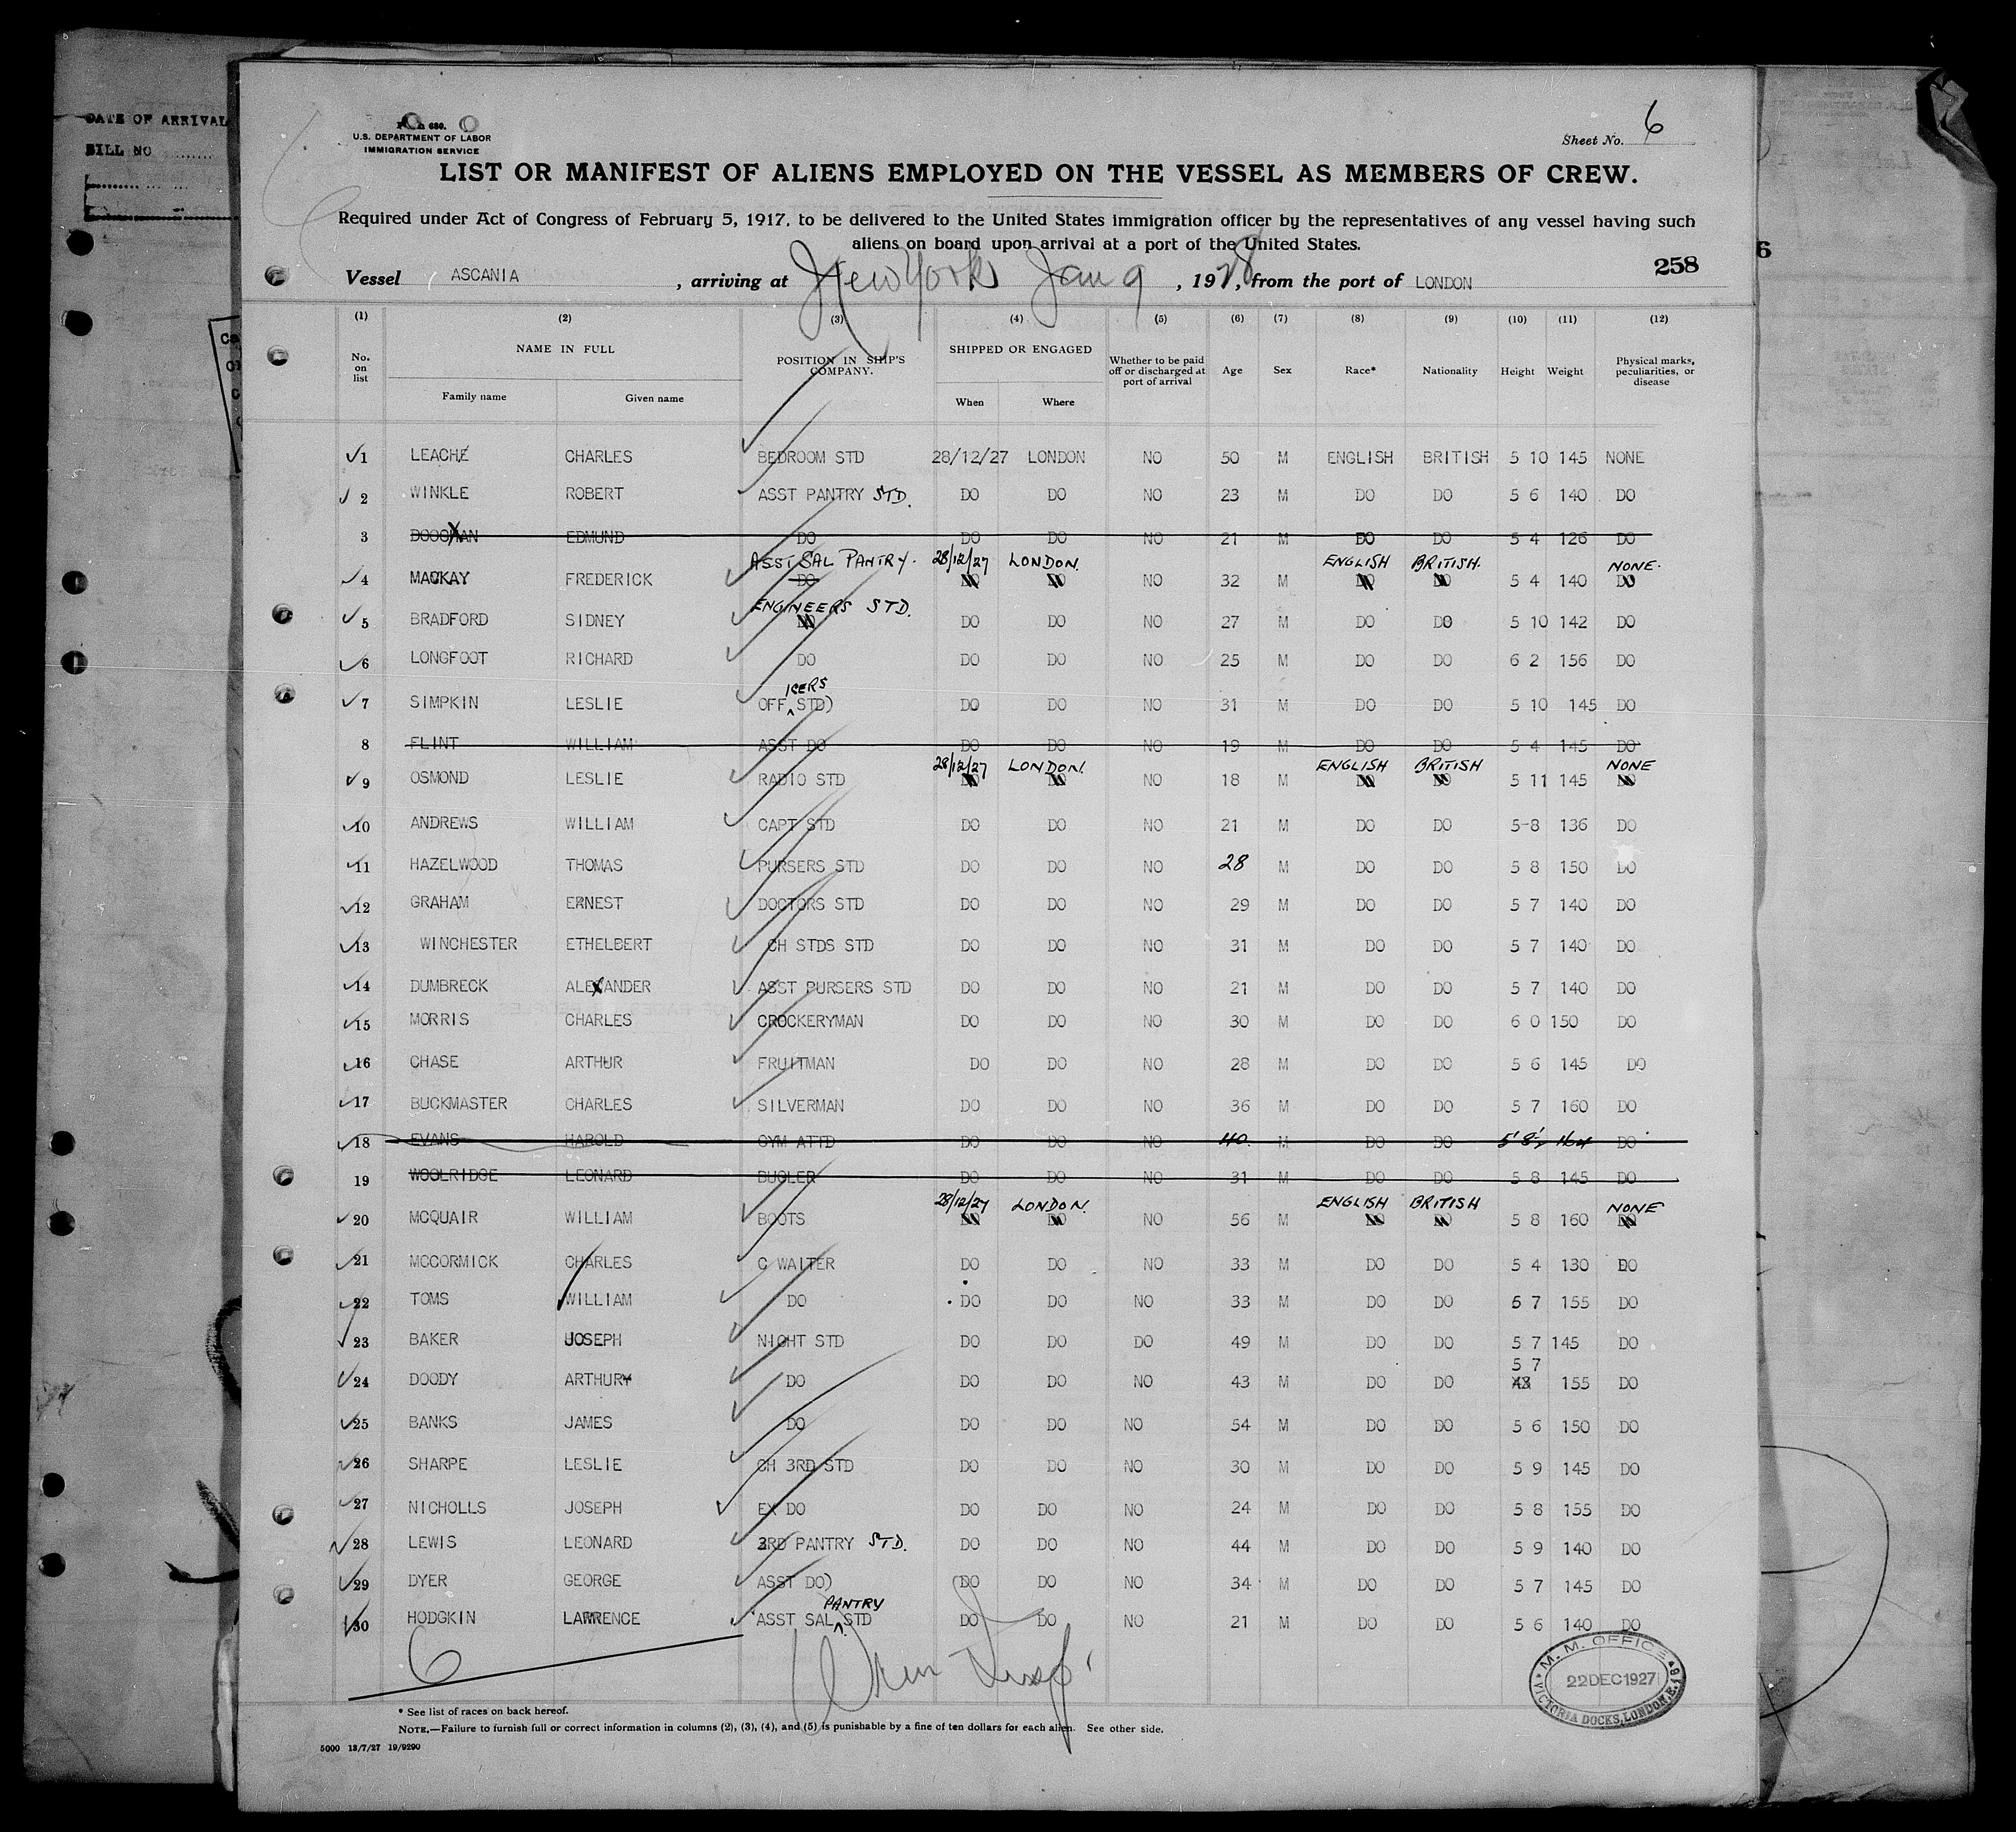 DATE OF ARRIVAL
BILL NO
Form 680.
U.S. DEPARTMENT OF LABOR
IMMIGRATION SERVICE
Sheet No. 6
LIST OR MANIFEST OF ALIENS EMPLOYED ON THE VESSEL AS MEMBERS OF CREW.
Required under Act of Congress of February 5, 1917, to be delivered to the United States immigration officer by the representatives of any vessel having such
aliens on board upon arrival at a port of the United States.
258
Vessel ASCANIA , arriving at New York Jan 9 , 1928, from the port of LONDON
(1) (2) (3) (4) (5) (6) (7) (8) (9) (10) (11) (12)
No. on list NAME IN FULL Family name Given name POSITION IN SHIP'S COMPANY. SHIPPED OR ENGAGED When Where Whether to be paid off or discharged at port of arrival Age Sex Race* Nationality Height Weight Physical marks, peculiarities, or disease
1 LEACHE CHARLES BEDROOM STD 28/12/27 LONDON NO 50 M ENGLISH BRITISH 5 10 145 NONE
2 WINKLE ROBERT ASST PANTRY STD. DO DO NO 23 M DO DO 5 6 140 DO
3 EDMUND DO DO DO NO 21 M DO DO 5 4 126 DO
ASST SAL PANTRY. 28/12/27 LONDON. ENGLISH BRITISH. NONE.
4 MACKAY FREDERICK DO DO DO NO 32 M DO DO 5 4 140 DO
ENGINEERS STD.
5 BRADFORD SIDNEY DO DO DO NO 27 M DO DO 5 10 142 DO
6 LONGFOOT RICHARD DO DO DO NO 25 M DO DO 6 2 156 DO
ICERS
7 SIMPKIN LESLIE OFF STD) DO DO NO 31 M DO DO 5 10 145 DO
8 FLINT WILLIAM ASST DO DO DO NO 19 M DO DO 5 4 145 DO
28/12/27 LONDON. ENGLISH BRITISH NONE
9 OSMOND LESLIE RADIO STD DO DO NO 18 M DO DO 5 11 145 DO
10 ANDREWS WILLIAM CAPT STD DO DO NO 21 M DO DO 5-8 136 DO
11 HAZELWOOD THOMAS PURSERS STD DO DO NO 28 M DO DO 5 8 150 DO
12 GRAHAM ERNEST DOCTORS STD DO DO NO 29 M DO DO 5 7 140 DO
13 WINCHESTER ETHELBERT CH STDS STD DO DO NO 31 M DO DO 5 7 140 DO
14 DUMBRECK ALEXANDER ASST PURSERS STD DO DO NO 21 M DO DO 5 7 140 DO
15 MORRIS CHARLES CROCKERYMAN DO DO NO 30 M DO DO 6 0 150 DO
16 CHASE ARTHUR FRUITMAN DO DO NO 28 M DO DO 5 6 145 DO
17 BUCKMASTER CHARLES SILVERMAN DO DO NO 36 M DO DO 5 7 160 DO
18 EVANS HAROLD GYM ATTD DO DO NO 40. M DO DO 5'8½ 164 DO
19 WOOLRIDGE LEONARD BUGLER DO DO NO 31 M DO DO 5 8 145 DO
28/12/27 LONDON. ENGLISH BRITISH NONE
20 MCQUAIR WILLIAM BOOTS DO DO NO 56 M DO DO 5 8 160 DO
21 MCCORMICK CHARLES C WAITER DO DO NO 33 M DO DO 5 4 130 DO
22 TOMS WILLIAM DO DO DO NO 33 M DO DO 5 7 155 DO
23 BAKER JOSEPH NIGHT STD DO DO DO 49 M DO DO 5 7 145 DO
5 7
24 DOODY ARTHUR DO DO DO NO 43 M DO DO 43 155 DO
25 BANKS JAMES DO DO DO NO 54 M DO DO 5 6 150 DO
26 SHARPE LESLIE CH 3RD STD DO DO NO 30 M DO DO 5 9 145 DO
27 NICHOLLS JOSEPH EX DO DO DO NO 24 M DO DO 5 8 155 DO
28 LEWIS LEONARD 3RD PANTRY STD. DO DO NO 44 M DO DO 5 9 140 DO
29 DYER GEORGE ASST DO) DO DO NO 34 M DO DO 5 7 145 DO
PANTRY
30 HODGKIN LAWRENCE ASST SAL STD DO DO NO 21 M DO DO 5 6 140 DO
6
M. M. OFFICE
22 DEC 1927
VICTORIA DOCKS, LONDON, E.
* See list of races on back hereof.
NOTE.—Failure to furnish full or correct information in columns (2), (3), (4), and (5) is punishable by a fine of ten dollars for each alien. See other side.
5000 13/7/27 19/9290